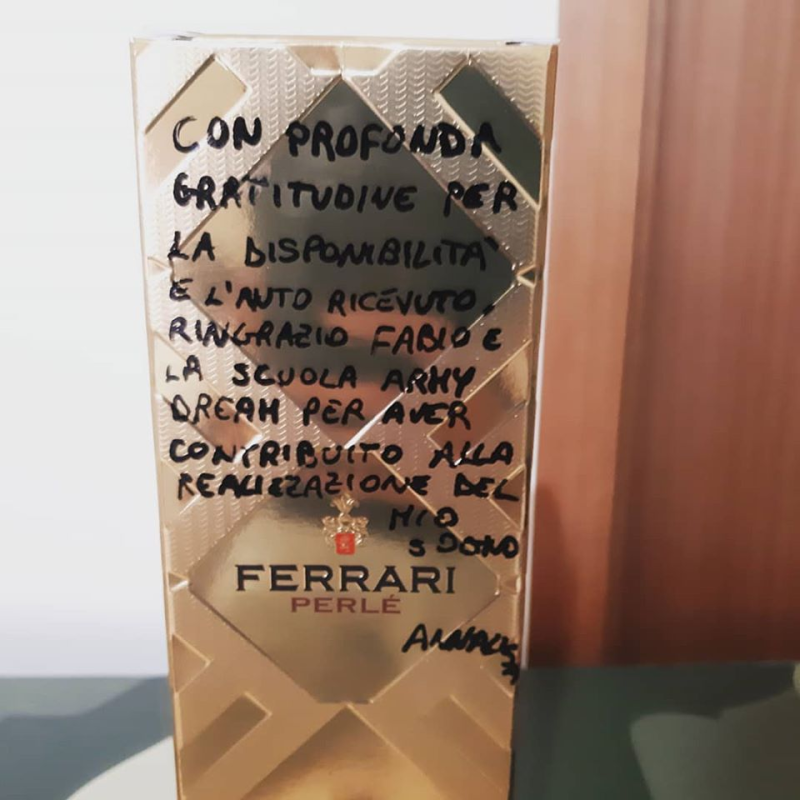 CON PROFONDA
GRATITUDINE PER
LA DISPONIBILITA'
E L'AUTO RICEVUTO,
RINGRAZIO FABIO E
LA SCUOLA ARMY
DREAM PER AVER
CONTRIBUITO ALLA
REALIZZAZIONE DEL
MIO
SOGNO
FERRARI
PERLÉ